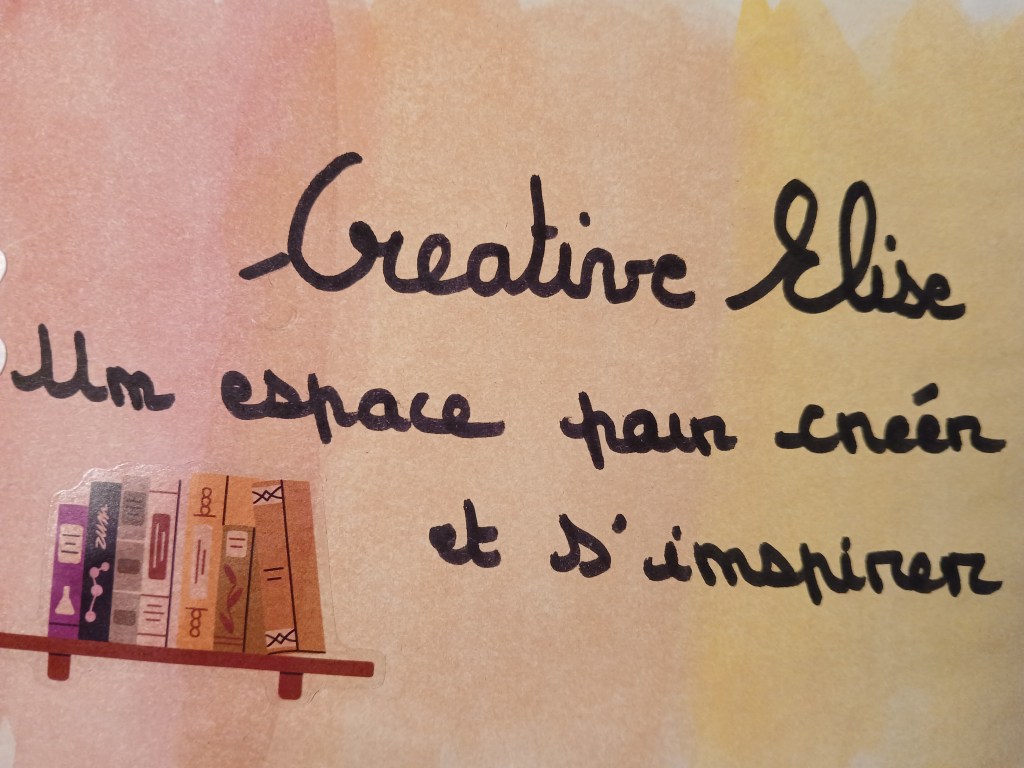 Creative Elise
Un espace pour créer
et s'inspirer